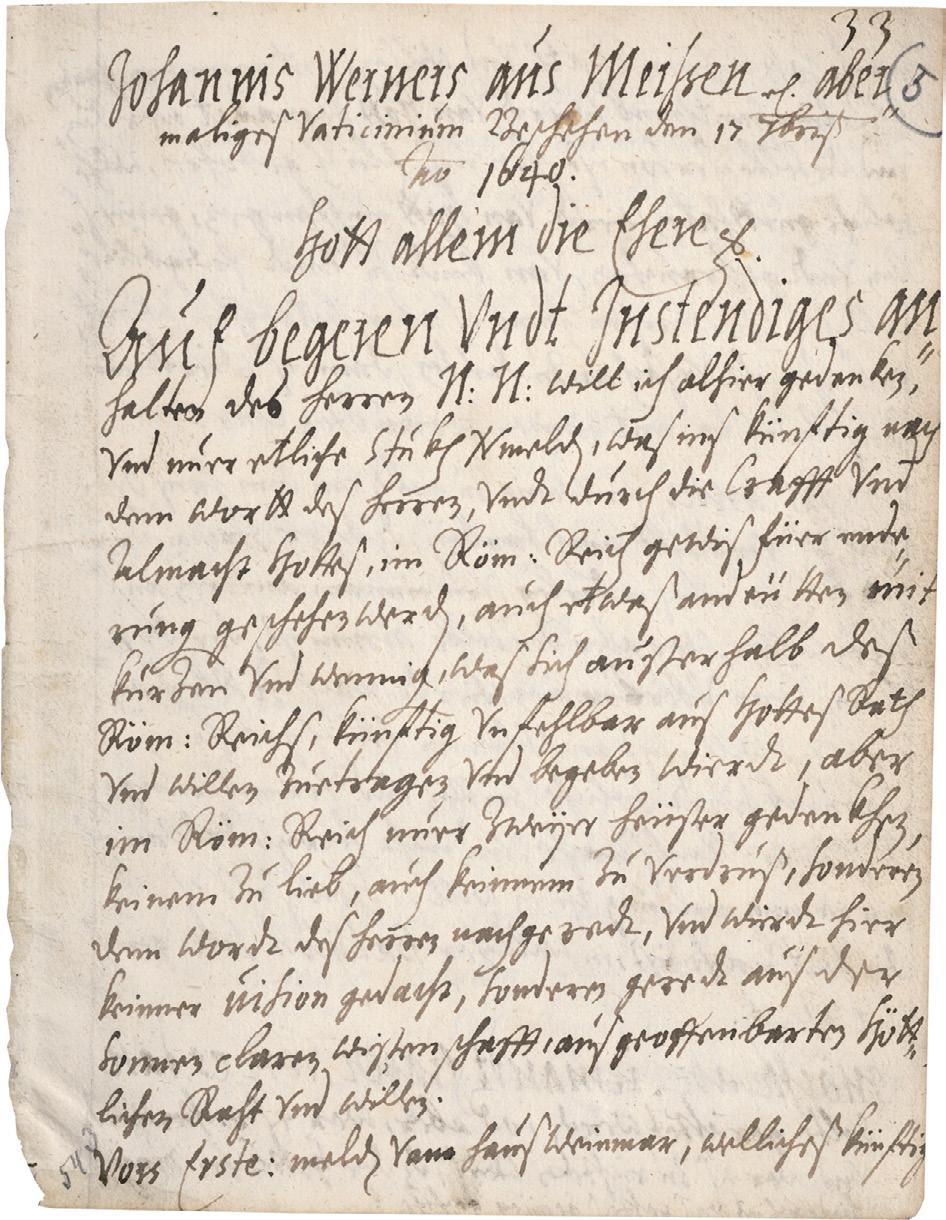 33
5
Johannis Werners aus Meißen aber
maliges Vaticinium Beschehen den 17 7bris
Ao 1640.
Gott allein die Ehere
Auf begeren Vndt Instendiges an
halten des herren N: N: will ich alhier gedenken,
Vnd nuer etliche Stukh Vermelden, was ins künfftig nach
dem wortt des herren, Vndt durch die Crafft Vnd
Almacht Gottes, im Röm: Reich gewis füer ende
rung geschehen werden, auch etwas andeütten mit
kurzen Vnd wennig, was sich ausserhalb des
Röm: Reichs, künfftig Vnfehlbar aus Gottes Rath
Vnd willen Zuetragen Vnd begeben wierdt, aber
im Röm: Reich nuer Zweÿer heüsser gedenkhen,
keinem Zu lieb, auch keinnem Zu Verdrus, sonderen
dem wordt des herren nachgeredt, Vnd wierdt hier
keinner vision gedacht, sonderen geredt aus der
sonnen claren wissenschafft, aus geoffenbarten Gött
lichen Raht Vnd willen.
Vors Erste: melden Vom haus Weinmar, welliches künfftig